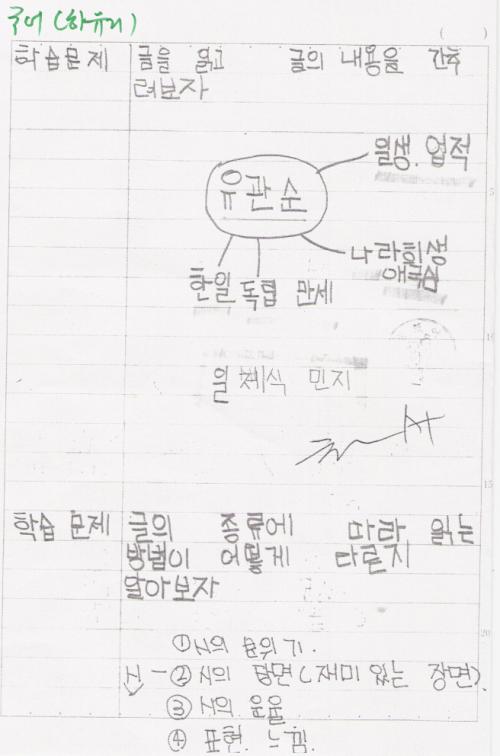 국어 (하유리)
( )
학습문제 글을 읽고 글의 내용을 간추
려보자
일생. 업적
유관순
나라희생
애국심
한일 독립 만세
일 체식 민지
학습 문제 글의 종류에 따라 읽는
방법이 어떻게 다른지
알아보자
① 시의 분위기.
시 - ② 시의 장면 (재미있는 장면).
③ 시의 운율
④ 표현. 느낌.